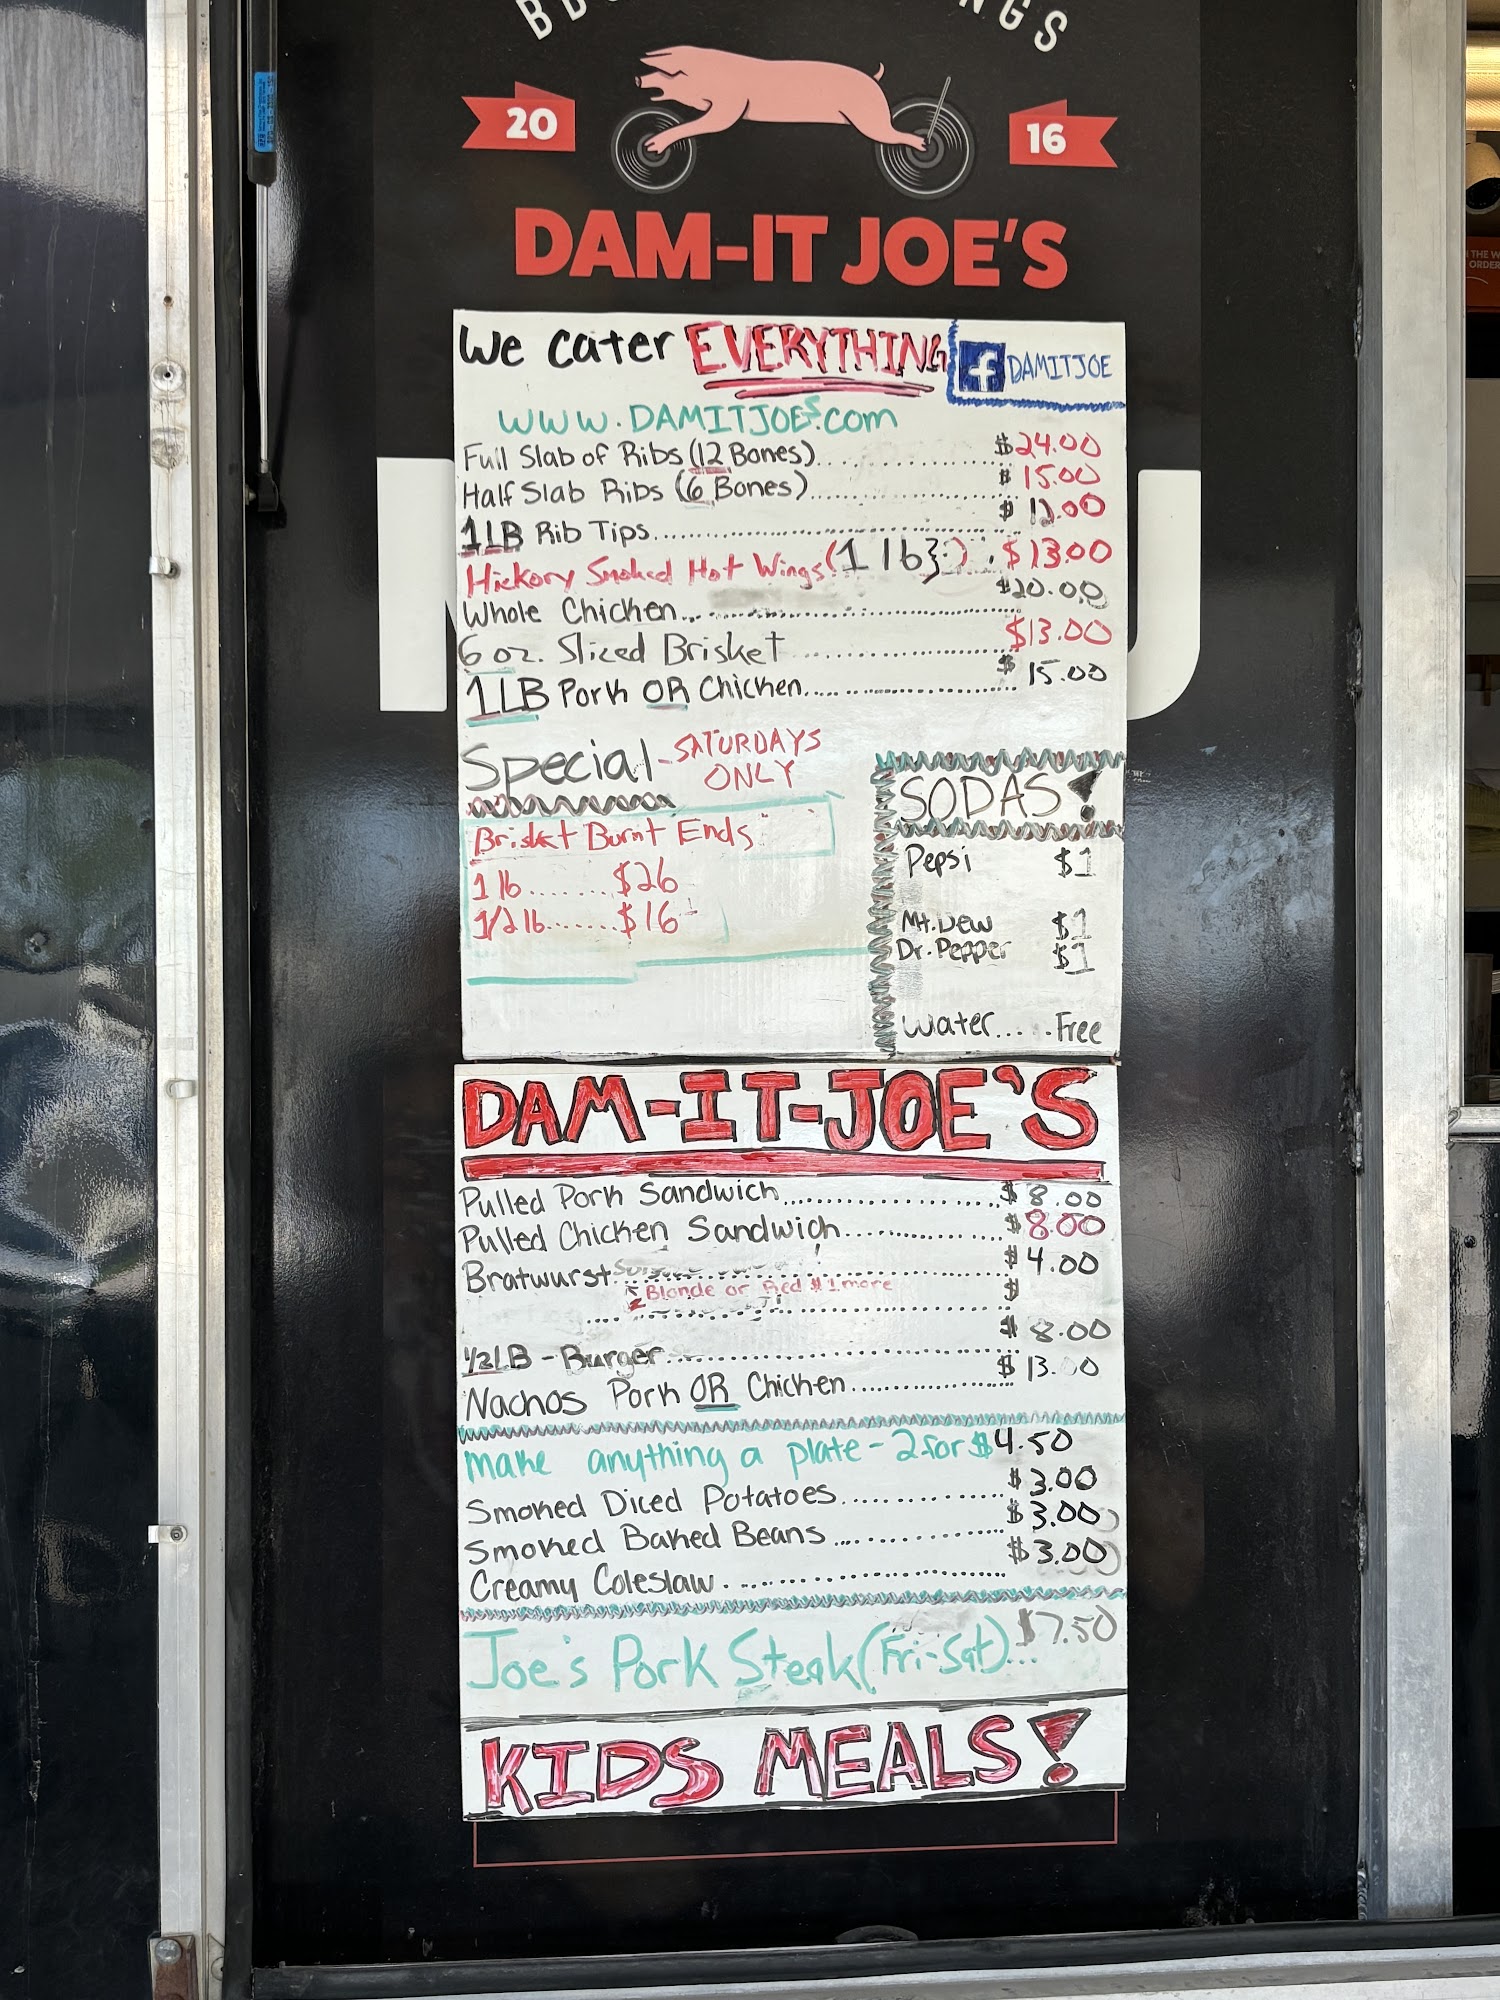 20
16
DAM-IT JOE'S
We cater EVERYTHING
f DAMITJOE
WWW.DAMITJOES.com
Full Slab of Ribs (12 Bones) $24.00
Half Slab Ribs (6 Bones) $15.00
1LB Rib Tips $12.00
Hickory Smoked Hot Wings (1 lb) $13.00
Whole Chicken $20.00
6 oz. Sliced Brisket $13.00
1LB Pork OR Chicken $15.00
Special - SATURDAYS ONLY
Brisket Burnt Ends
1 lb $26
1/2 lb $16
SODAS!
Pepsi $1
Mt. Dew $1
Dr. Pepper $1
Water Free
DAM-IT-JOE'S
Pulled Pork Sandwich $8.00
Pulled Chicken Sandwich $8.00
Bratwurst $4.00
Blonde or Red $1 more
$
1/2LB - Burger $8.00
Nachos Pork OR Chicken $13.00
Make anything a plate - 2 for $4.50
Smoked Diced Potatoes $3.00
Smoked Baked Beans $3.00
Creamy Coleslaw $3.00
Joe's Pork Steak (Fri-Sat) $7.50
KIDS MEALS!